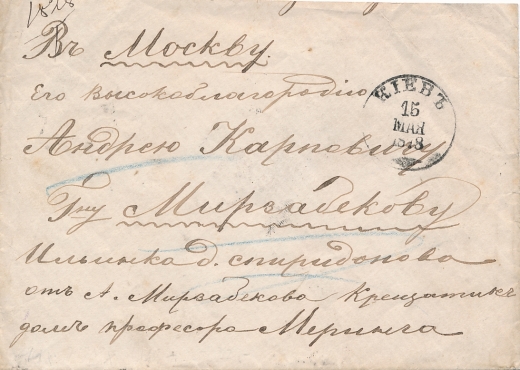 1818
Въ Москву
Его Высокоблагородію
Андрею Карповичу
Гну Мирзабекову
Ильинка д. спиридонова
отъ А. Мирзабекова Крещатикъ
домъ професора Меринга
КІЕВЪ
15
МАЯ